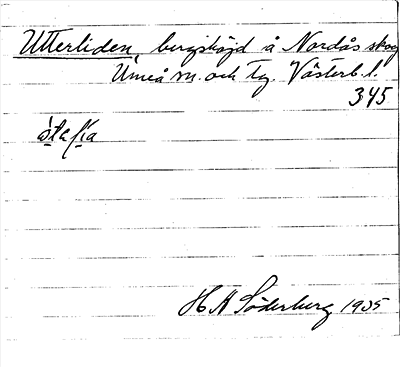 Utterliden, bergshöjd å Nordås skog
Umeå sn. och tg. Västerb. l.
345
H A Söderberg 1935